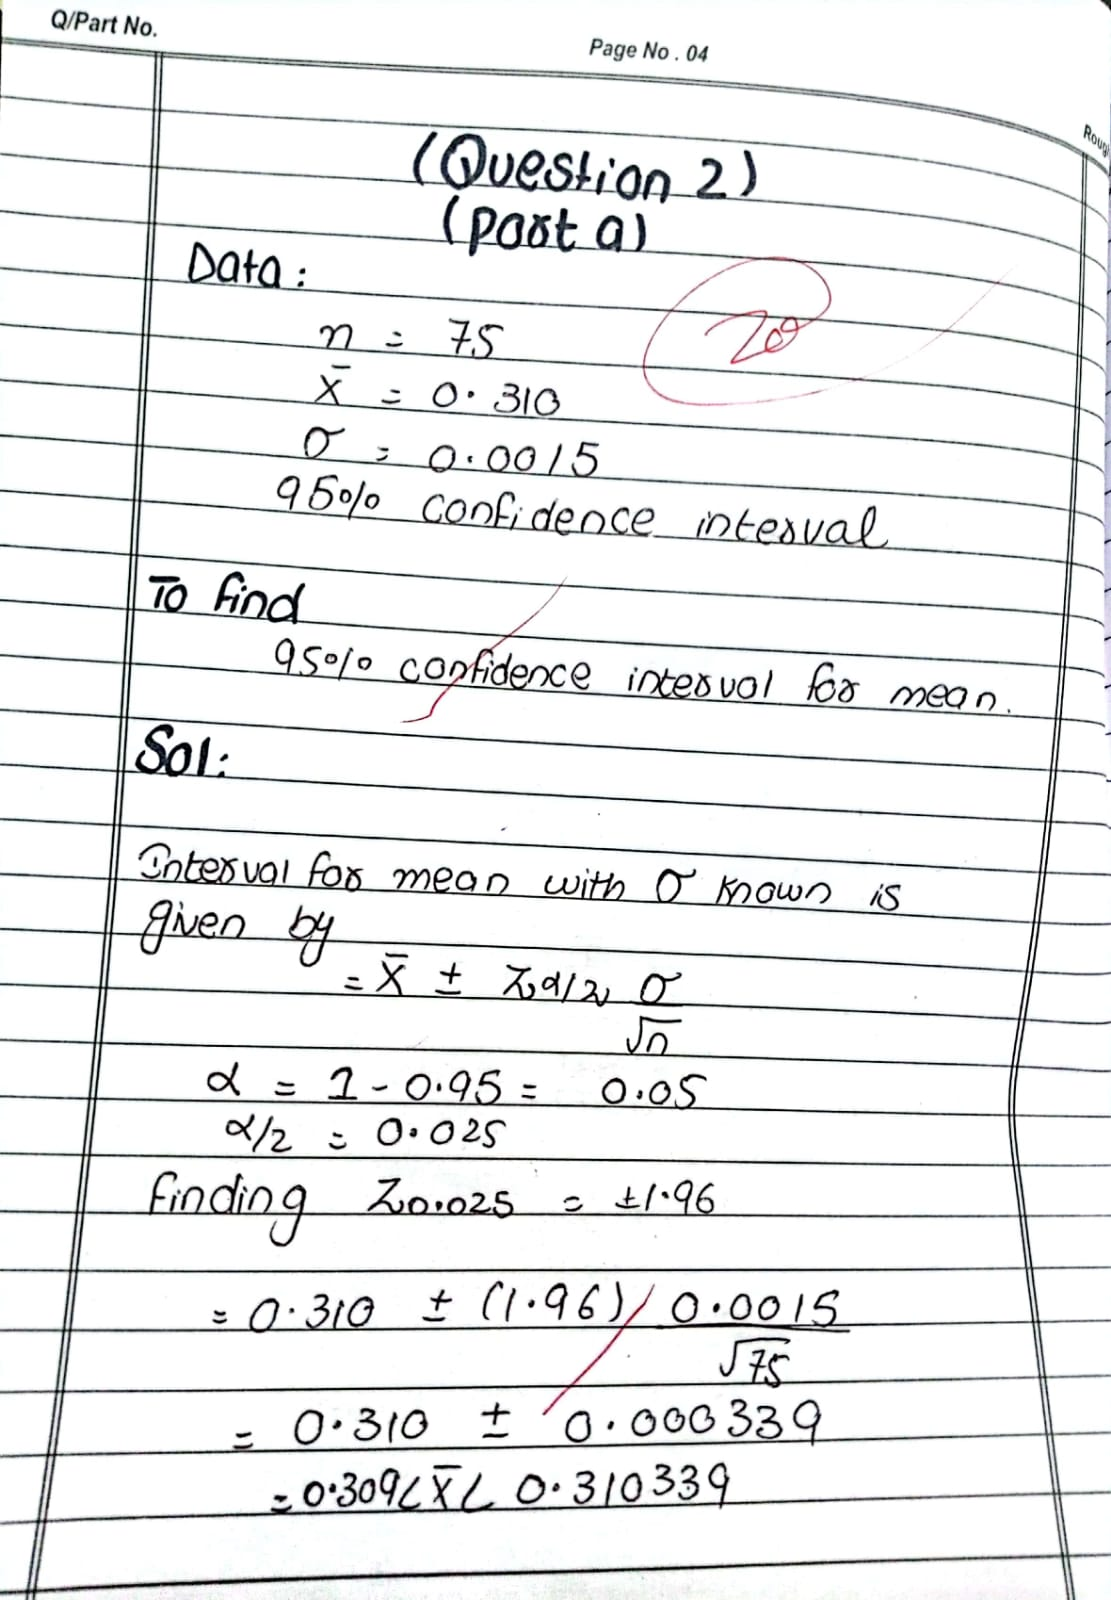 Q/Part No.
Page No. 04
Roug
(Question 2)
(part a)
Data:
n = 75
x̄ = 0.310
σ = 0.0015
95% confidence interval
To find
95% confidence interval for mean.
Sol:
Interval for mean with σ known is
given by
= x̄ ± Zα/2 σ/√n
α = 1 - 0.95 = 0.05
α/2 = 0.025
finding Z0.025 = ±1.96
= 0.310 ± (1.96) 0.0015/√75
= 0.310 ± 0.000339
= 0.309 < x̄ < 0.310339